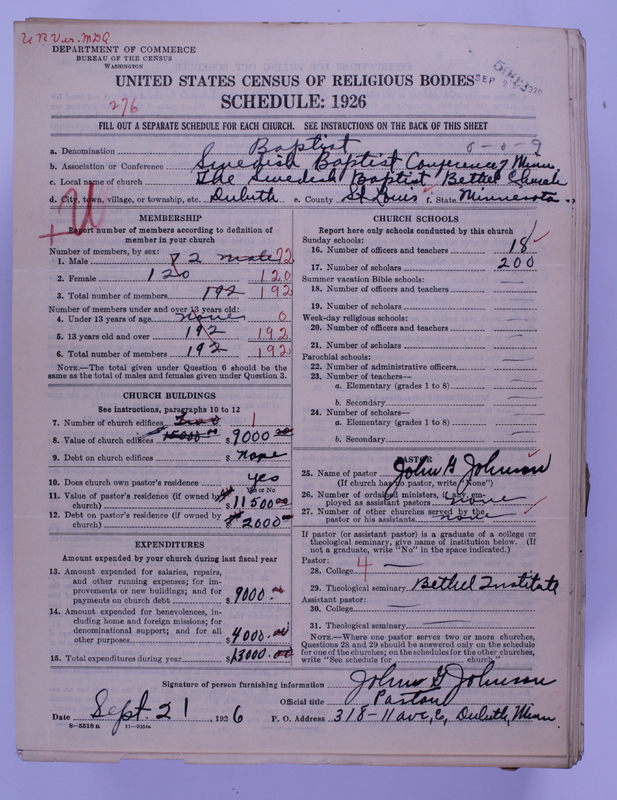 U R Ver. MDG
DEPARTMENT OF COMMERCE
BUREAU OF THE CENSUS
WASHINGTON
UNITED STATES CENSUS OF RELIGIOUS BODIES
SEP
SCHEDULE: 1926
276
FILL OUT A SEPARATE SCHEDULE FOR EACH CHURCH. SEE INSTRUCTIONS ON THE BACK OF THIS SHEET
a. Denomination Baptist 6-0-9
b. Association or Conference Swedish Baptist Conference of Minn.
c. Local name of church The Swedish Baptist Bethel Church
d. City, town, village, or township, etc. Duluth e. County St Louis f. State Minnesota
+U
MEMBERSHIP
Report number of members according to definition of
member in your church
Number of members, by sex:
1. Male 72 male 72
2. Female 120 120
3. Total number of members 192 192
Number of members under and over 13 years old:
4. Under 13 years of age none 0
5. 13 years old and over 192 192
6. Total number of members 192 192
NOTE.—The total given under Question 6 should be the
same as the total of males and females given under Question 3.
CHURCH BUILDINGS
See instructions, paragraphs 10 to 12
7. Number of church edifices Two 1
8. Value of church edifices 15000 00 $ 9000 00
9. Debt on church edifices $ none
10. Does church own pastor's residence? yes
Yes or No
11. Value of pastor's residence (if owned by
church) $ 11500 00
12. Debt on pastor's residence (if owned by
church) $ 2000 00
EXPENDITURES
Amount expended by your church during last fiscal year
13. Amount expended for salaries, repairs,
and other running expenses; for im-
provements or new buildings; and for
payments on church debt $ 9000.00
14. Amount expended for benevolences, in-
cluding home and foreign missions; for
denominational support; and for all
other purposes $ 4000.00
15. Total expenditures during year $ 13000.00
CHURCH SCHOOLS
Report here only schools conducted by this church
Sunday schools:
16. Number of officers and teachers 18
17. Number of scholars 200
Summer vacation Bible schools:
18. Number of officers and teachers
19. Number of scholars
Week-day religious schools:
20. Number of officers and teachers
21. Number of scholars
Parochial schools:
22. Number of administrative officers
23. Number of teachers—
a. Elementary (grades 1 to 8)
b. Secondary
24. Number of scholars—
a. Elementary (grades 1 to 8)
b. Secondary
PASTOR
25. Name of pastor John G Johnson
(If church has no pastor, write "None")
26. Number of ordained ministers, if any, em-
ployed as assistant pastors none
27. Number of other churches served by the
pastor or his assistants none
If pastor (or assistant pastor) is a graduate of a college or
theological seminary, give name of institution below. (If
not a graduate, write "No" in the space indicated.)
Pastor: 4
28. College
29. Theological seminary Bethel Institute
Assistant pastor:
30. College
31. Theological seminary
NOTE.—Where one pastor serves two or more churches,
Questions 28 and 29 should be answered only on the schedule
for one of the churches; on the schedules for the other churches,
write "See schedule for church."
Signature of person furnishing information John G Johnson
Official title Pastor
Date Sept. 21, 1926 P. O. Address 318-11 ave, E, Duluth, Minn
8—5518 a